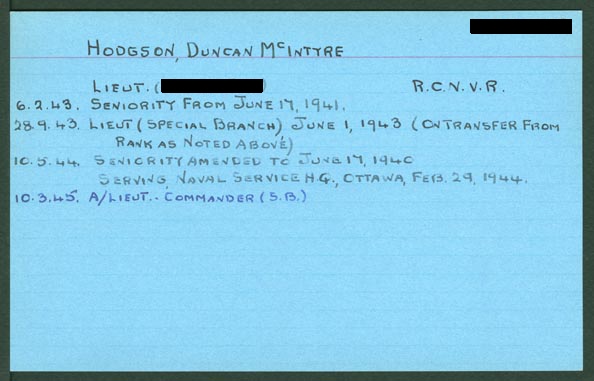 HODGSON, DUNCAN McINTYRE
LIEUT. ( ) R.C.N.V.R.
6.2.43. SENIORITY FROM JUNE 17, 1941.
28.9.43. LIEUT (SPECIAL BRANCH) JUNE 1, 1943 (ON TRANSFER FROM
RANK AS NOTED ABOVE)
10.5.44. SENIORITY AMENDED TO JUNE 17, 1940
SERVING NAVAL SERVICE H.Q., OTTAWA, FEB. 29, 1944.
10.3.45. A/LIEUT.-COMMANDER (S.B.)